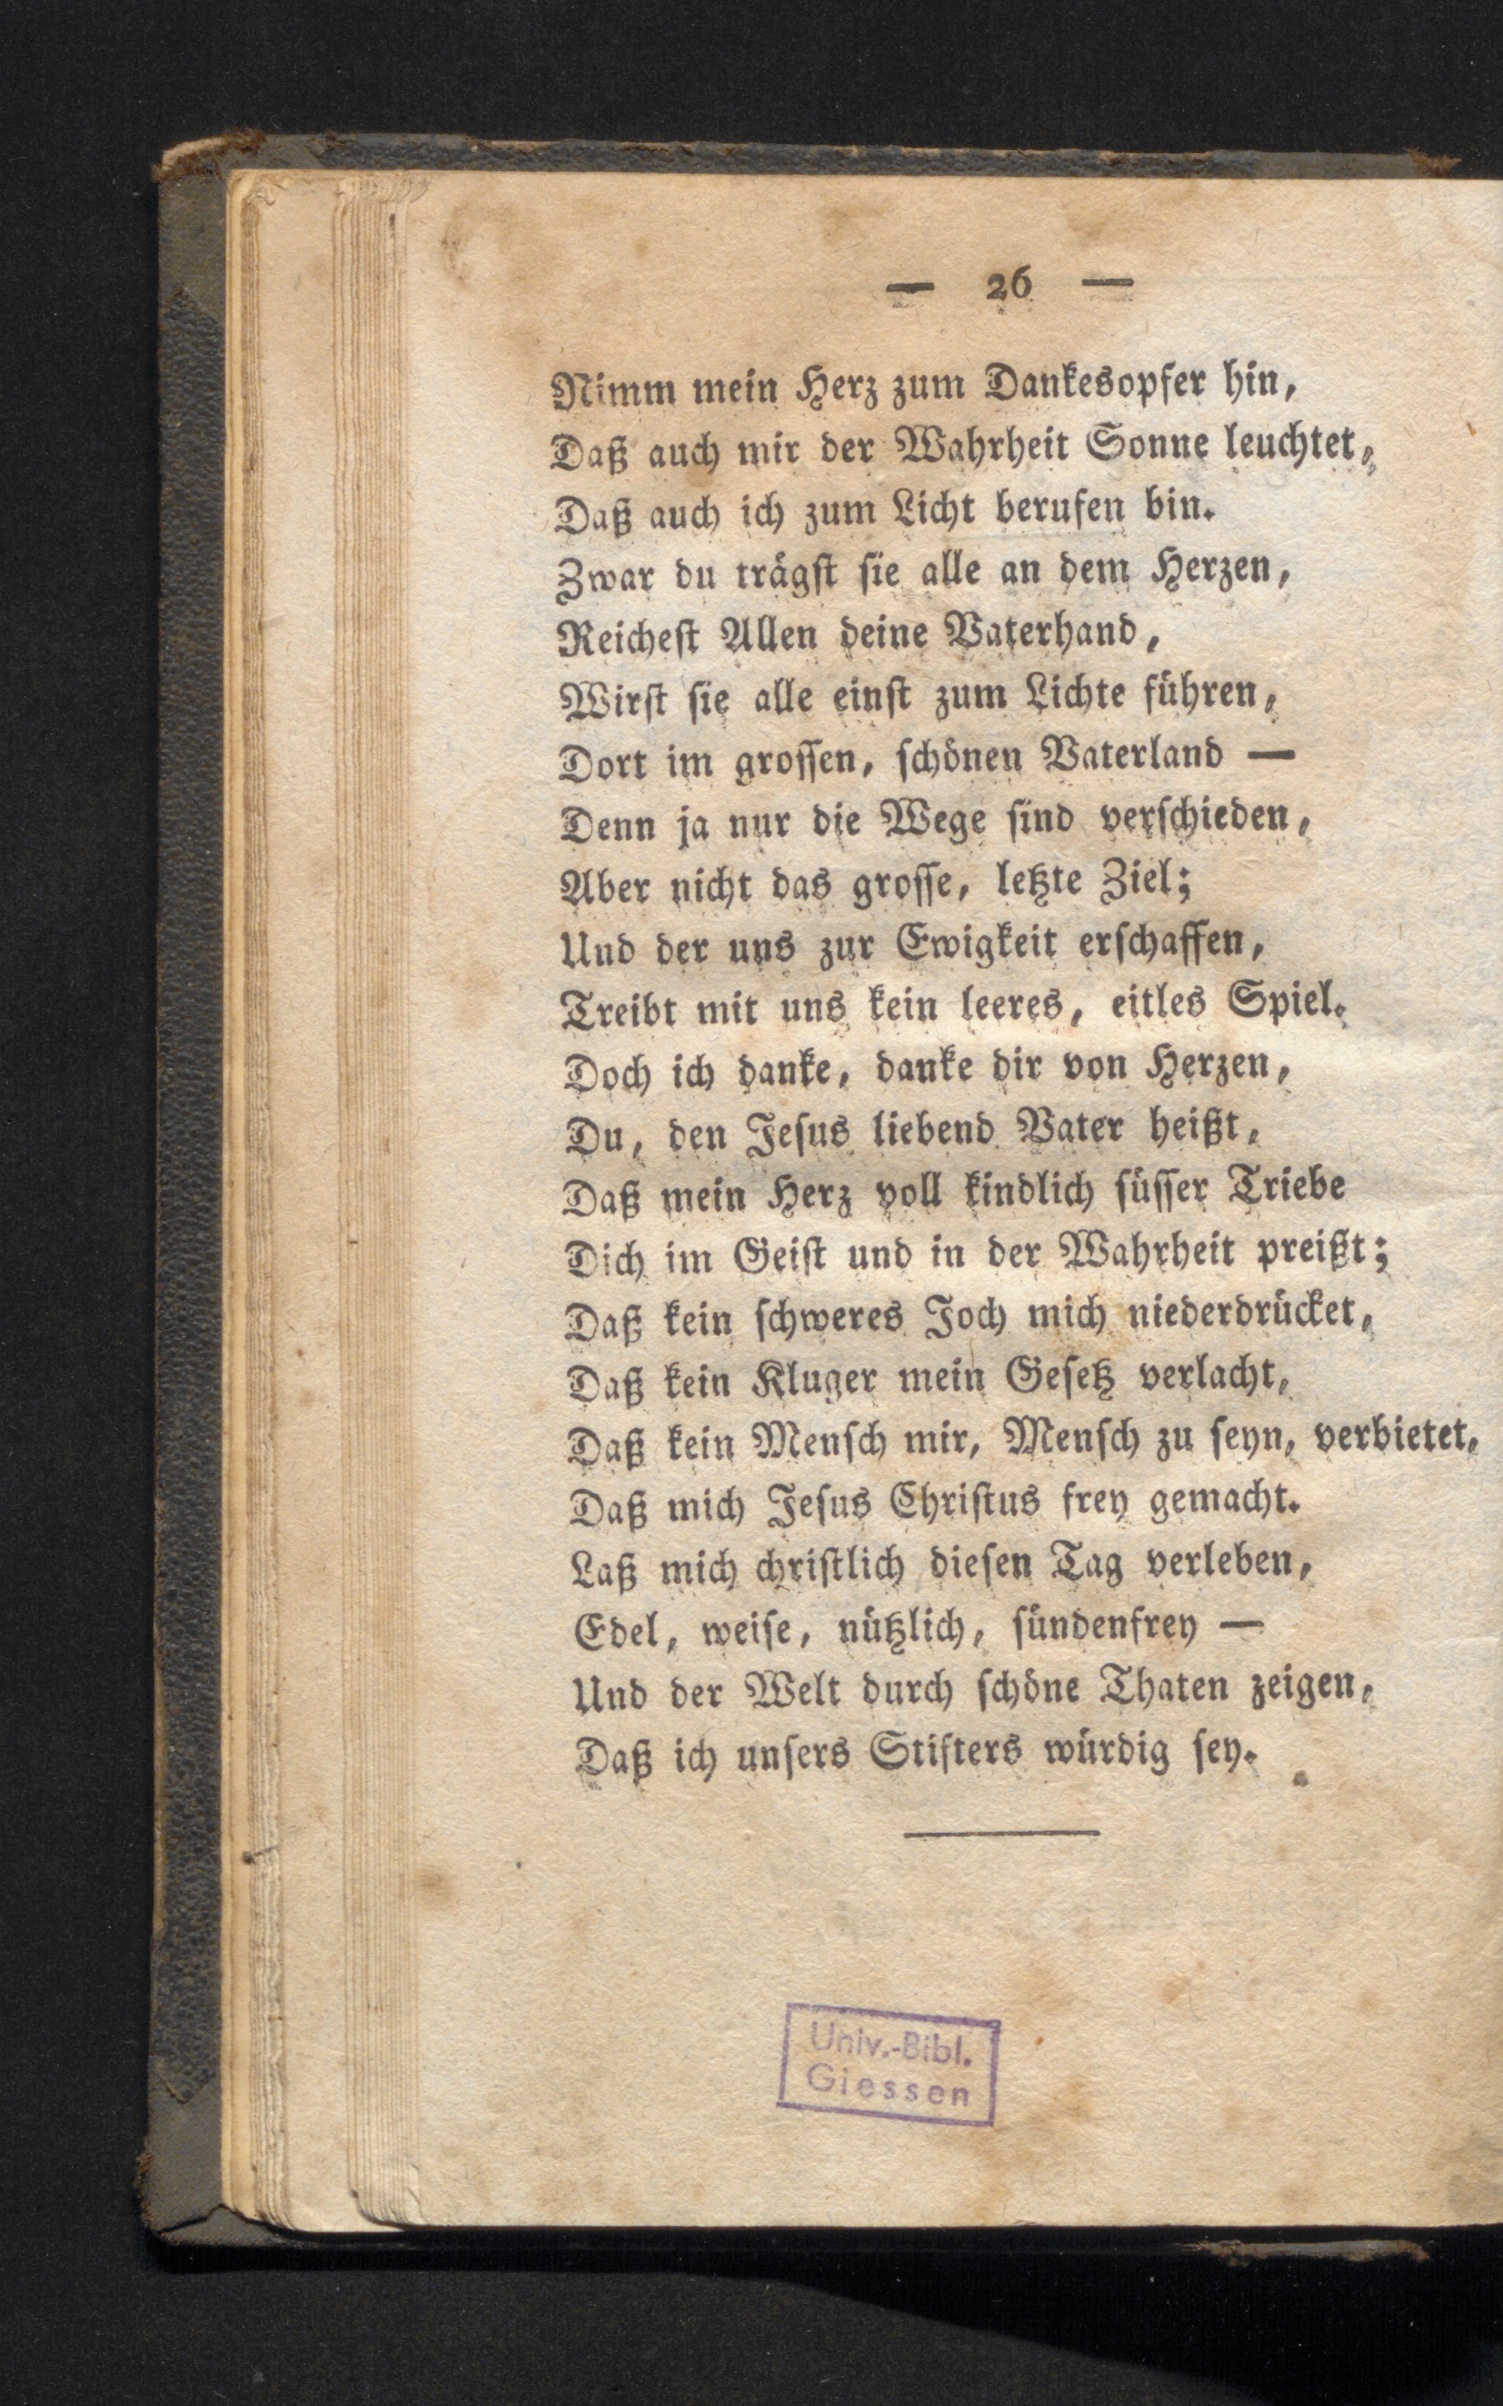 — 26 —
Nimm mein Herz zum Dankesopfer hin,
Daß auch mir der Wahrheit Sonne leuchtet,
Daß auch ich zum Licht berufen bin.
Zwar du trägst sie alle an dem Herzen,
Reichest Allen deine Vaterhand,
Wirst sie alle einst zum Lichte führen,
Dort im grossen, schönen Vaterland —
Denn ja nur die Wege sind verschieden,
Aber nicht das grosse, letzte Ziel;
Und der uns zur Ewigkeit erschaffen,
Treibt mit uns kein leeres, eitles Spiel.
Doch ich danke, danke dir von Herzen,
Du, den Jesus liebend Vater heißt,
Daß mein Herz voll kindlich süsser Triebe
Dich im Geist und in der Wahrheit preißt;
Daß kein schweres Joch mich niederdrücket,
Daß kein Kluger mein Gesetz verlacht,
Daß kein Mensch mir, Mensch zu seyn, verbietet,
Daß mich Jesus Christus frey gemacht.
Laß mich christlich diesen Tag verleben,
Edel, weise, nützlich, sündenfrey —
Und der Welt durch schöne Thaten zeigen,
Daß ich unsers Stifters würdig sey.
Univ.-Bibl.
Giessen